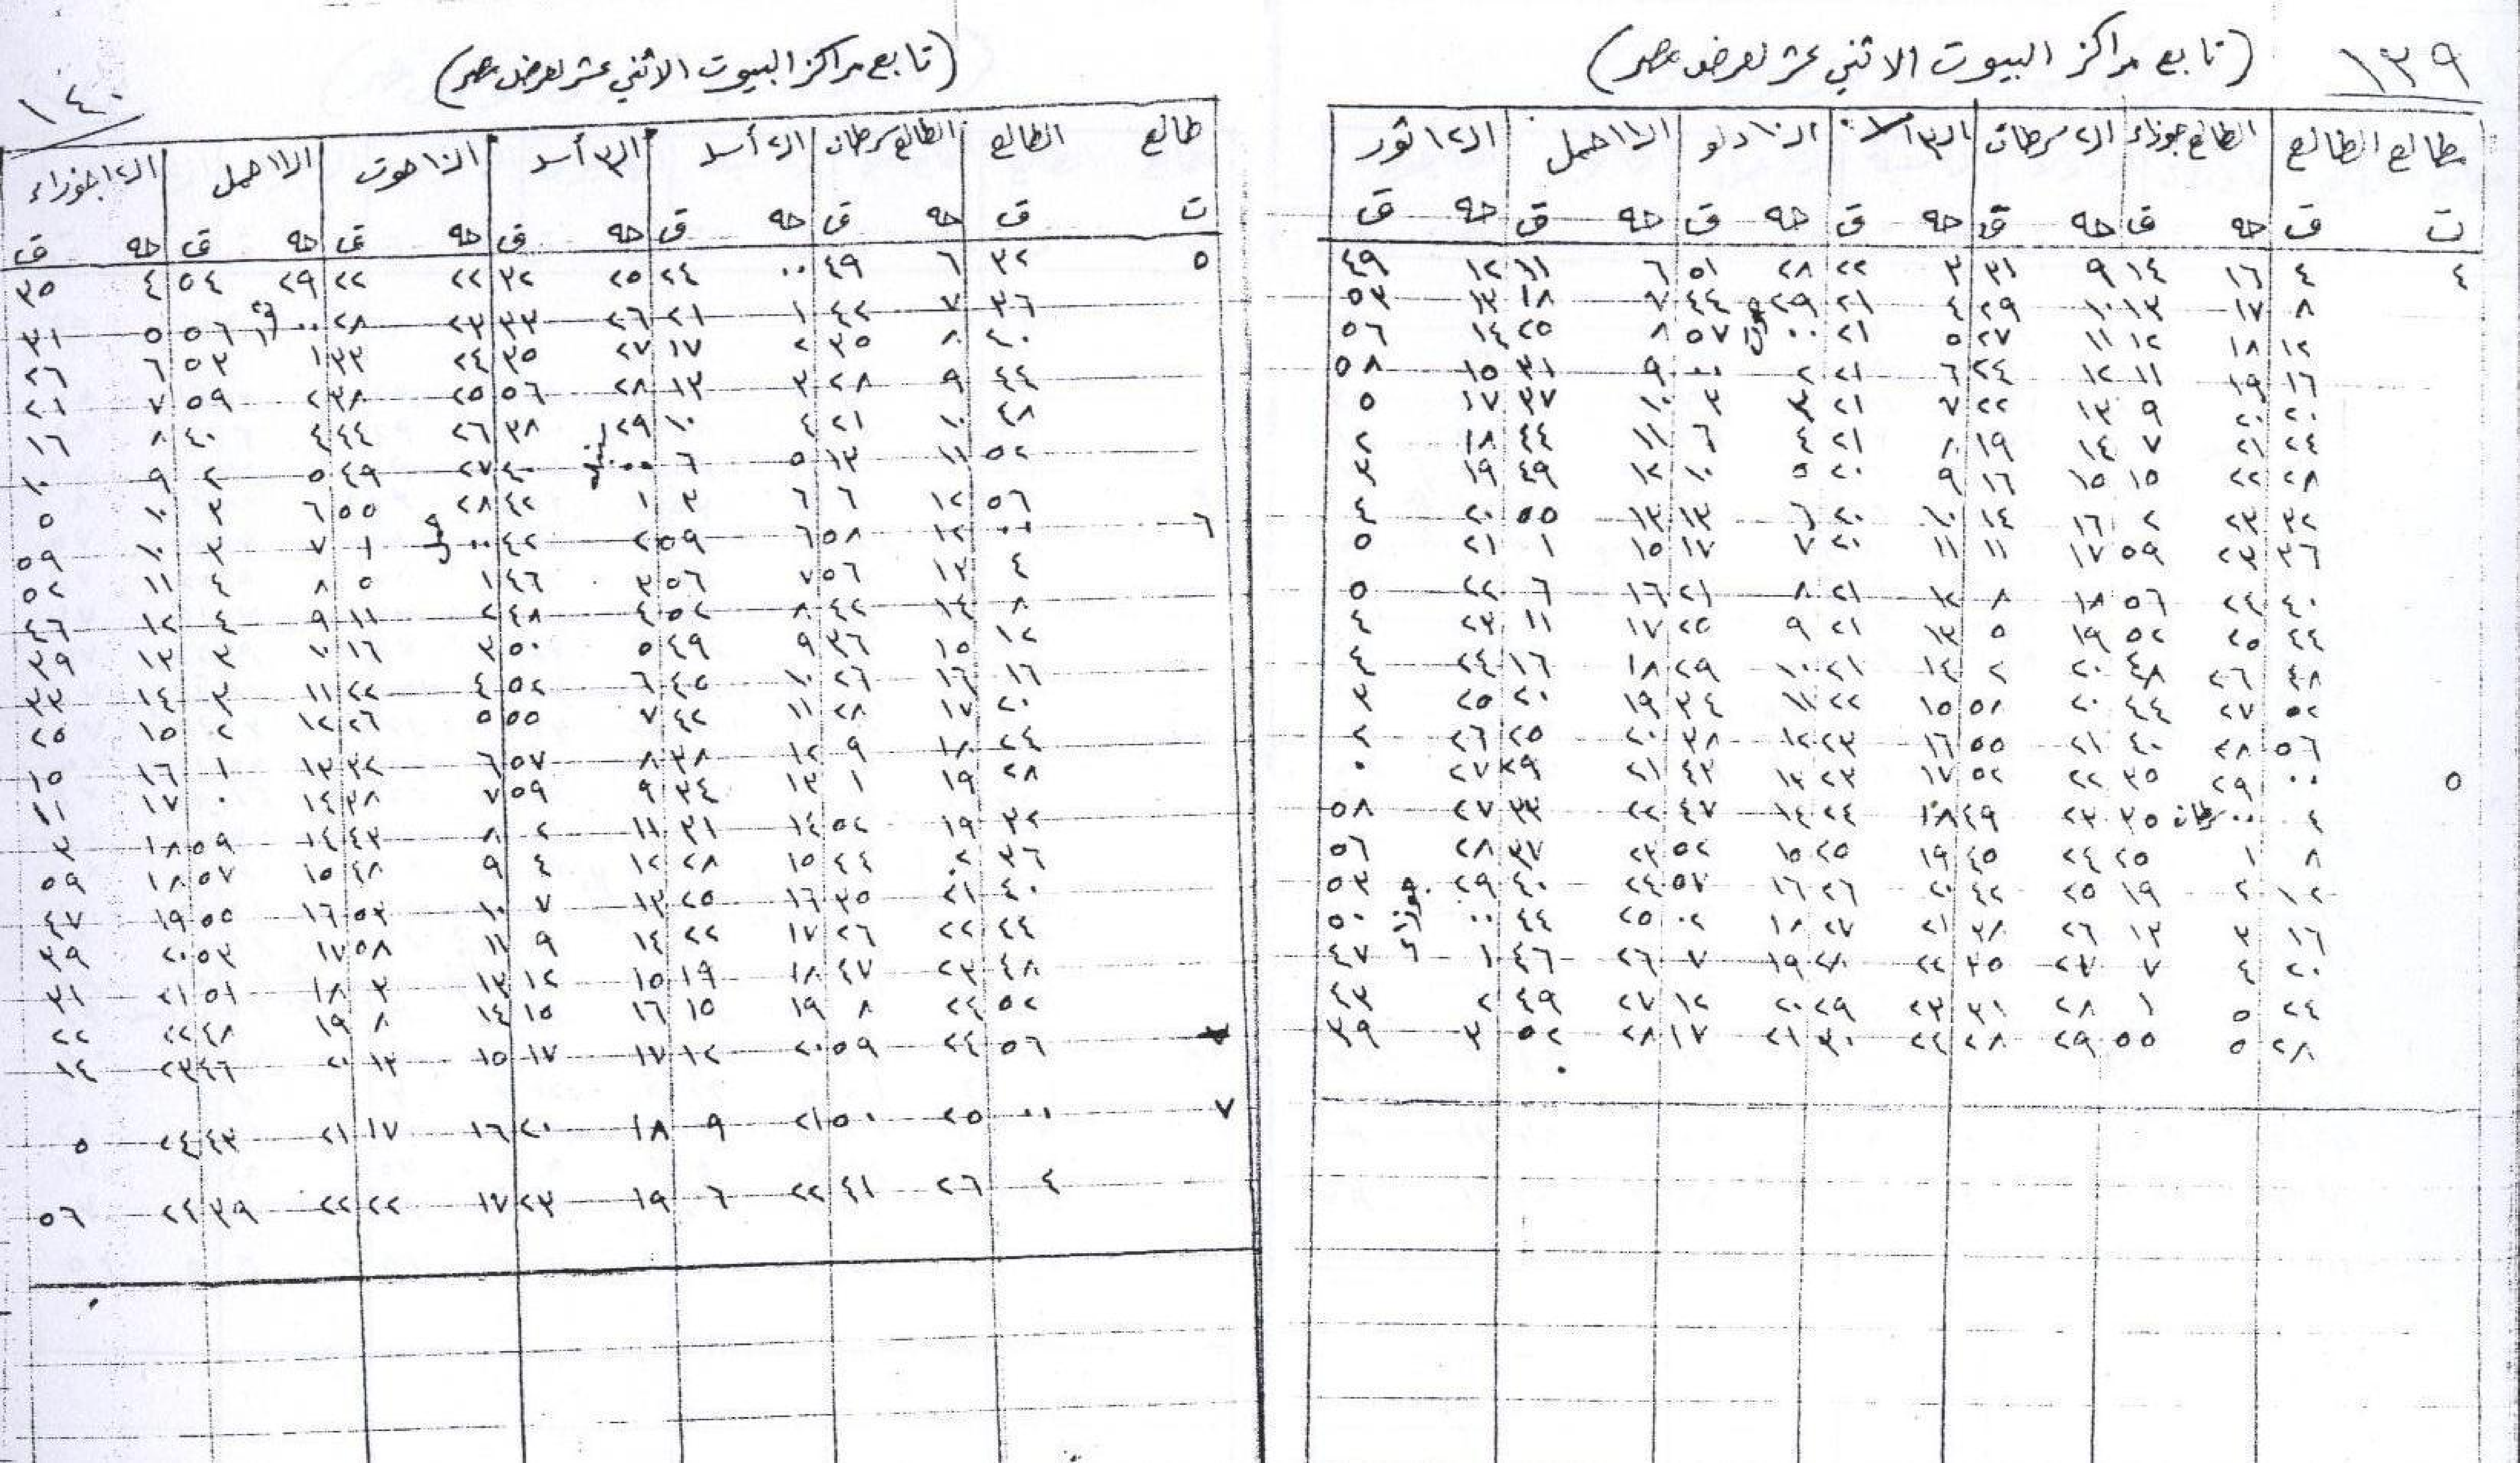 ١٣٩
(تابع مراكز البيوت الاثني عشر لعرض مصر)
مطالع الطالع | الطالع جوزاء | الـ٢ سرطان | الـ٣ | الـ١٠ دلو | الـ١١ حمل | الـ١٢ ثور
ت ق حه ق حه ق حه ق حه ق حه ق حه ق
٤ ٤ ١٦ ١٤ ٩ ٣١ ٣ ٢٢ ٢٨ ٥١ ٦ ١١ ١٢ ٤٩
٨ ١٧ ١٣ ١٠ ٢٩ ٤ ٢١ ٢٩ ٤٤ ٧ ١٨ ١٣ ٥٣
١٢ ١٨ ١٢ ١١ ٢٧ ٥ ٢١ ٠٠ ٥٧ ٨ ٢٥ ١٤ ٥٦
١٦ ١٩ ١١ ١٢ ٢٤ ٦ ٢١ ٢ ٠٠ ٩ ٣١ ١٥ ٥٨
٢٠ ٢٠ ٩ ١٣ ٢٢ ٧ ٢١ ٣ ٣ ١٠ ٣٧ ١٧ ٥
٢٤ ٢١ ٧ ١٤ ١٩ ٨ ٢١ ٤ ٦ ١١ ٤٤ ١٨ ٢
٢٨ ٢٢ ١٥ ١٥ ١٦ ٩ ٢٠ ٥ ١٠ ١٢ ٤٩ ١٩ ٣
٣٢ ٢٣ ٢ ١٦ ١٤ ١٠ ٢٠ ٦ ١٣ ١٣ ٥٥ ٢٠ ٤
٣٦ ٢٣ ٥٩ ١٧ ١١ ١١ ٢٠ ٧ ١٧ ١٥ ١ ٢١ ٥
٤٠ ٢٤ ٥٦ ١٨ ٨ ١٢ ٢١ ٨ ٢١ ١٦ ٦ ٢٢ ٥
٤٤ ٢٥ ٥٢ ١٩ ٥ ١٣ ٢١ ٩ ٢٥ ١٧ ١١ ٢٣ ٤
٤٨ ٢٦ ٤٨ ٢٠ ٢ ١٤ ٢١ ١٠ ٢٩ ١٨ ١٦ ٢٤ ٤
٥٢ ٢٧ ٤٤ ٢٠ ٥٨ ١٥ ٢٢ ١١ ٣٤ ١٩ ٢٠ ٢٥ ٣
٥٦ ٢٨ ٤٠ ٢١ ٥٥ ١٦ ٢٣ ١٢ ٣٨ ٢٠ ٢٥ ٢٦ ٢
٥ ٠٠ ٢٩ ٣٥ ٢٢ ٥٢ ١٧ ٢٣ ١٣ ٤٣ ٢١ ٢٩ ٢٧ ٠
٤ ٠٠ سرطان ٣٥ ٢٣ ٤٩ ١٨ ٢٤ ١٤ ٤٧ ٢٢ ٣٣ ٢٧ ٥٨
٨ ١ ٢٥ ٢٤ ٤٥ ١٩ ٢٥ ١٥ ٥٢ ٢٣ ٣٧ ٢٨ ٥٦
١٢ ٢ ١٩ ٢٥ ٤٢ ٢٠ ٢٦ ١٦ ٥٧ ٢٤ ٤٠ ٢٩ ٥٣
١٦ ٣ ١٣ ٢٦ ٣٨ ٢١ ٢٧ ١٨ ٠٢ ٢٥ ٤٤ ٠٠ جوزاء ٥٠
٢٠ ٤ ٧ ٢٧ ٣٥ ٢٢ ٢٨ ١٩ ٧ ٢٦ ٤٦ ١ ٤٧
٢٤ ٥ ١ ٢٨ ٣١ ٢٣ ٢٩ ٢٠ ١٢ ٢٧ ٤٩ ٢ ٤٣
٢٨ ٥ ٥٥ ٢٩ ٢٨ ٢٤ ٣٠ ٢١ ١٧ ٢٨ ٥٢ ٣ ٣٩
١٤٠
(تابع مراكز البيوت الاثني عشر لعرض مصر)
طالع الطالع | الطالع سرطان | الـ٢ أسد | الـ٣ أسد | الـ١٠ حوت | الـ١١ حمل | الـ١٢ جوزاء
ت ق حه ق حه ق حه ق حه ق حه ق حه ق
٥ ٣٢ ٦ ٤٩ ٠٠ ٢٤ ٢٥ ٣٢ ٢٢ ٢٢ ٢٩ ٥٤ ٤ ٣٥
٣٦ ٧ ٤٢ ١ ٢١ ٢٦ ٣٣ ٢٣ ٢٨ ٠٠ ٥٦ ٥ ٣١
٤٠ ٨ ٣٥ ٢ ١٧ ٢٧ ٣٥ ٢٤ ٣٣ ١ ٥٣ ٦ ٢٦
٤٤ ٩ ٢٨ ٣ ١٣ ٢٨ ٥٦ ٢٥ ٣٨ ٢ ٥٩ ٧ ٢١
٤٨ ١٠ ٢١ ٤ ١٠ ٢٩ ٣٨ ٢٦ ٤٤ ٤ ٤٠ ٨ ١٦
٥٢ ١١ ١٣ ٥ ٦ ٠٠ سنبله ٤٠ ٢٧ ٤٩ ٥ ٢ ٩ ١٠
٥٦ ١٢ ٦ ٦ ٣ ١ ٤٢ ٢٨ ٥٥ ٦ ٣ ١٠ ٥
٦ ٠٠ ١٢ ٥٨ ٦ ٥٩ ٢ ٤٢ ٠٠ ١ ٧ ٣ ١٠ ٥٩
٤ ١٣ ٥٦ ٧ ٥٦ ٣ ٤٦ ١ ٥ ٨ ٤ ١١ ٥٢
٨ ١٤ ٤٢ ٨ ٥٢ ٤ ٤٨ ٢ ١١ ٩ ٤ ١٢ ٤٦
١٢ ١٥ ٣٦ ٩ ٤٩ ٥ ٥٠ ٣ ١٦ ١٠ ٣ ١٣ ٣٩
١٦ ١٦ ٢٦ ١٠ ٤٥ ٦ ٥٢ ٤ ٢٢ ١١ ٣ ١٤ ٣٣
٢٠ ١٧ ٢٨ ١١ ٤٢ ٧ ٥٥ ٥ ٢٦ ١٢ ٢ ١٥ ٢٥
٢٤ ١٨ ٩ ١٢ ٣٨ ٨ ٥٧ ٦ ٣٢ ١٣ ١ ١٦ ١٥
٢٨ ١٩ ١ ١٣ ٣٤ ٩ ٥٩ ٧ ٣٨ ١٤ ٠ ١٧ ١١
٣٢ ١٩ ٥٢ ١٤ ٣١ ١١ ٢ ٨ ٤٣ ١٤ ٥٩ ١٨ ٣
٣٦ ٢٠ ٤٤ ١٥ ٢٨ ١٢ ٤ ٩ ٤٨ ١٥ ٥٧ ١٨ ٥٩
٤٠ ٢١ ٣٥ ١٦ ٢٥ ١٣ ٧ ١٠ ٥٣ ١٦ ٥٥ ١٩ ٤٧
٤٤ ٢٢ ٢٦ ١٧ ٢٢ ١٤ ٩ ١١ ٥٨ ١٧ ٥٣ ٢٠ ٣٩
٤٨ ٢٣ ٤٧ ١٨ ١٩ ١٥ ١٢ ١٣ ٣ ١٨ ٥١ ٢١ ٣١
٥٢ ٢٤ ٨ ١٩ ١٥ ١٦ ١٥ ١٤ ٨ ١٩ ٤٨ ٢٢ ٢٢
٥٦ ٢٤ ٥٩ ٢٠ ١٢ ١٧ ١٧ ١٥ ١٣ ٢٠ ٤٦ ٢٣ ١٤
٧ ٠٠ ٢٥ ٥٠ ٢١ ٩ ١٨ ٢٠ ١٦ ١٧ ٢١ ٤٣ ٢٤ ٥
٤ ٢٦ ٤١ ٢٢ ٦ ١٩ ٢٣ ١٧ ٢٢ ٢٢ ٣٩ ٢٤ ٥٦